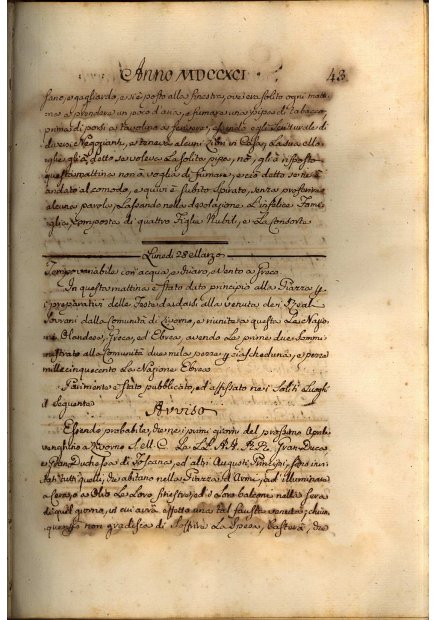 Anno MDCCXCI. 43
sano, e gagliardo, e si è posto alla finestra, ove era solito ogni matti-
na a prendere un poco d'aria, e fumare una pipa di tabacco,
prima di porsi a tavolino a scrivere, essendo egli scritturale di
diversi Negozianti, e teneva alcuni Libri in Casa, La sua Mo-
glie gli à detto se voleva La solita pipa, no, gli à risposto
questa mattina non ò voglia di fumare, e ciò detto se ne è
andato al comodo, e quivi è subito spirato, senza proferire
alcuna parola, Lassando nella desolazione L'infelice Fami-
glia composta di quattro Figlie Nubili, e La consorte
Lunedi 28 Marzo
Tempo variabile con acqua, e chiaro, e vento a Greco
In questa mattina è stato dato principio alla Piazza
preparativi delle Feste da darsi alla venuta dei Reali
Sovrani dalla Comunità di Livorno, e riunite a questa Le Nazio-
ni Olandese, Greca, ed Ebrea, avendo Le prime due sommi-
nistrato alla Comunità due mila pezze per ciascheduna, e pezze
mille cinquecento La Nazione Ebrea
Parimente è stato pubblicato, ed affissato nei Soliti Luoghi
il seguente
Avviso
Essendo probabile, che nei primi giorni del prossimo Aprile
venghino a Livorno S. M. C. Le LL. AA. RR. Gran Duca
e Gran Duchessa di Toscana, ed altri Augusti Principi, sono invi-
tati tutti quelli, che abitano nella Piazza d'Arme, ad illuminare
a Cera, o Olio Le Loro finestre, ed i Loro balconi nella sera
di quel giorno, in cui avrà effetto una tal fausta venuta; chiun-
que non gradisca di soffrire La spesa, basterà, che